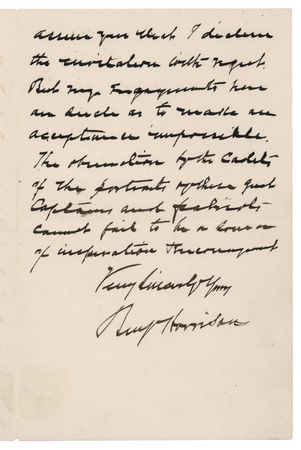 assure you that I decline
the invitation with regret.
But my engagements here
are such as to make an
acceptance impossible.
The observation by the Cadets
of the portraits of these great
Captains and patriots
cannot fail to be a source
of inspiration & encouragement
Very Sincerely Yours
Benj Harrison